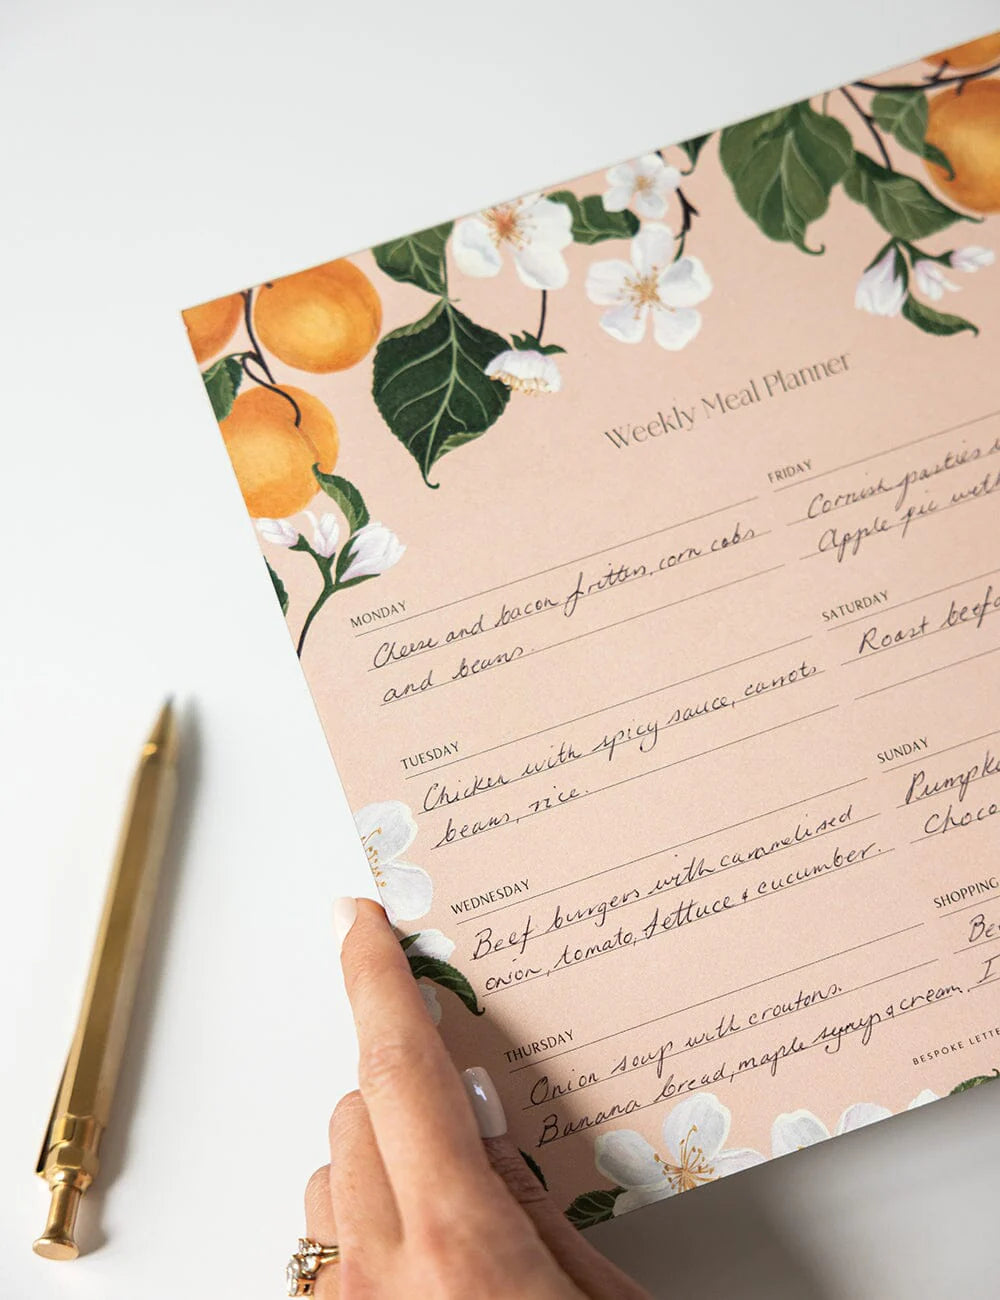 Weekly Meal Planner
MONDAY
Cheese and bacon fritters, corn cobs
and beans.
TUESDAY
Chicken with spicy sauce, carrots
beans, rice.
WEDNESDAY
Beef burgers with caramelised
onion, tomato, lettuce & cucumber.
THURSDAY
Onion soup with croutons.
Banana bread, maple syrup & cream.
FRIDAY
Cornish pasties
Apple pie with
SATURDAY
Roast beef
SUNDAY
SHOPPING
BESPOKE